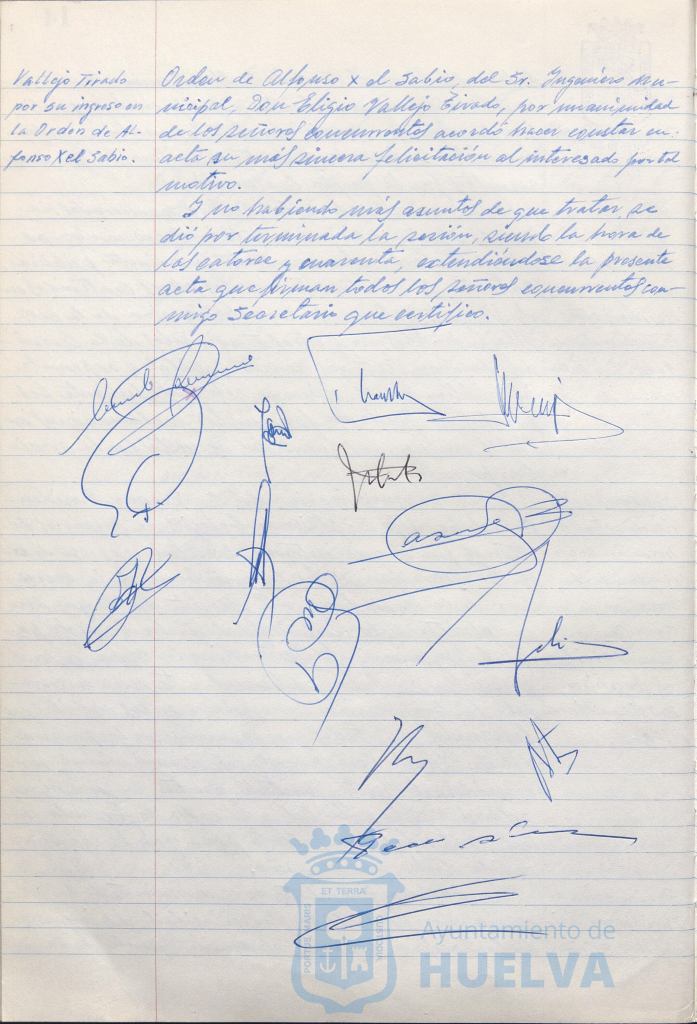 Vallejo Tirado
por su ingreso en
la Orden de Al-
fonso X el Sabio.
Orden de Alfonso X el Sabio, del Sr. Ingeniero mu-
nicipal, Don Eligio Vallejo Tirado, por unanimidad
de los señores concurrentes acordó hacer constar en
acta su más sincera felicitación al interesado por tal
motivo.
Y no habiendo más asuntos de que tratar, se
dió por terminada la sesión, siendo la hora de
las catorce y cuarenta, extendiéndose la presente
acta que firman todos los señores concurrentes con-
migo Secretario que certifico.
ET TERRA
PORTUS MARIS
CUSTODIA
Ayuntamiento de
HUELVA